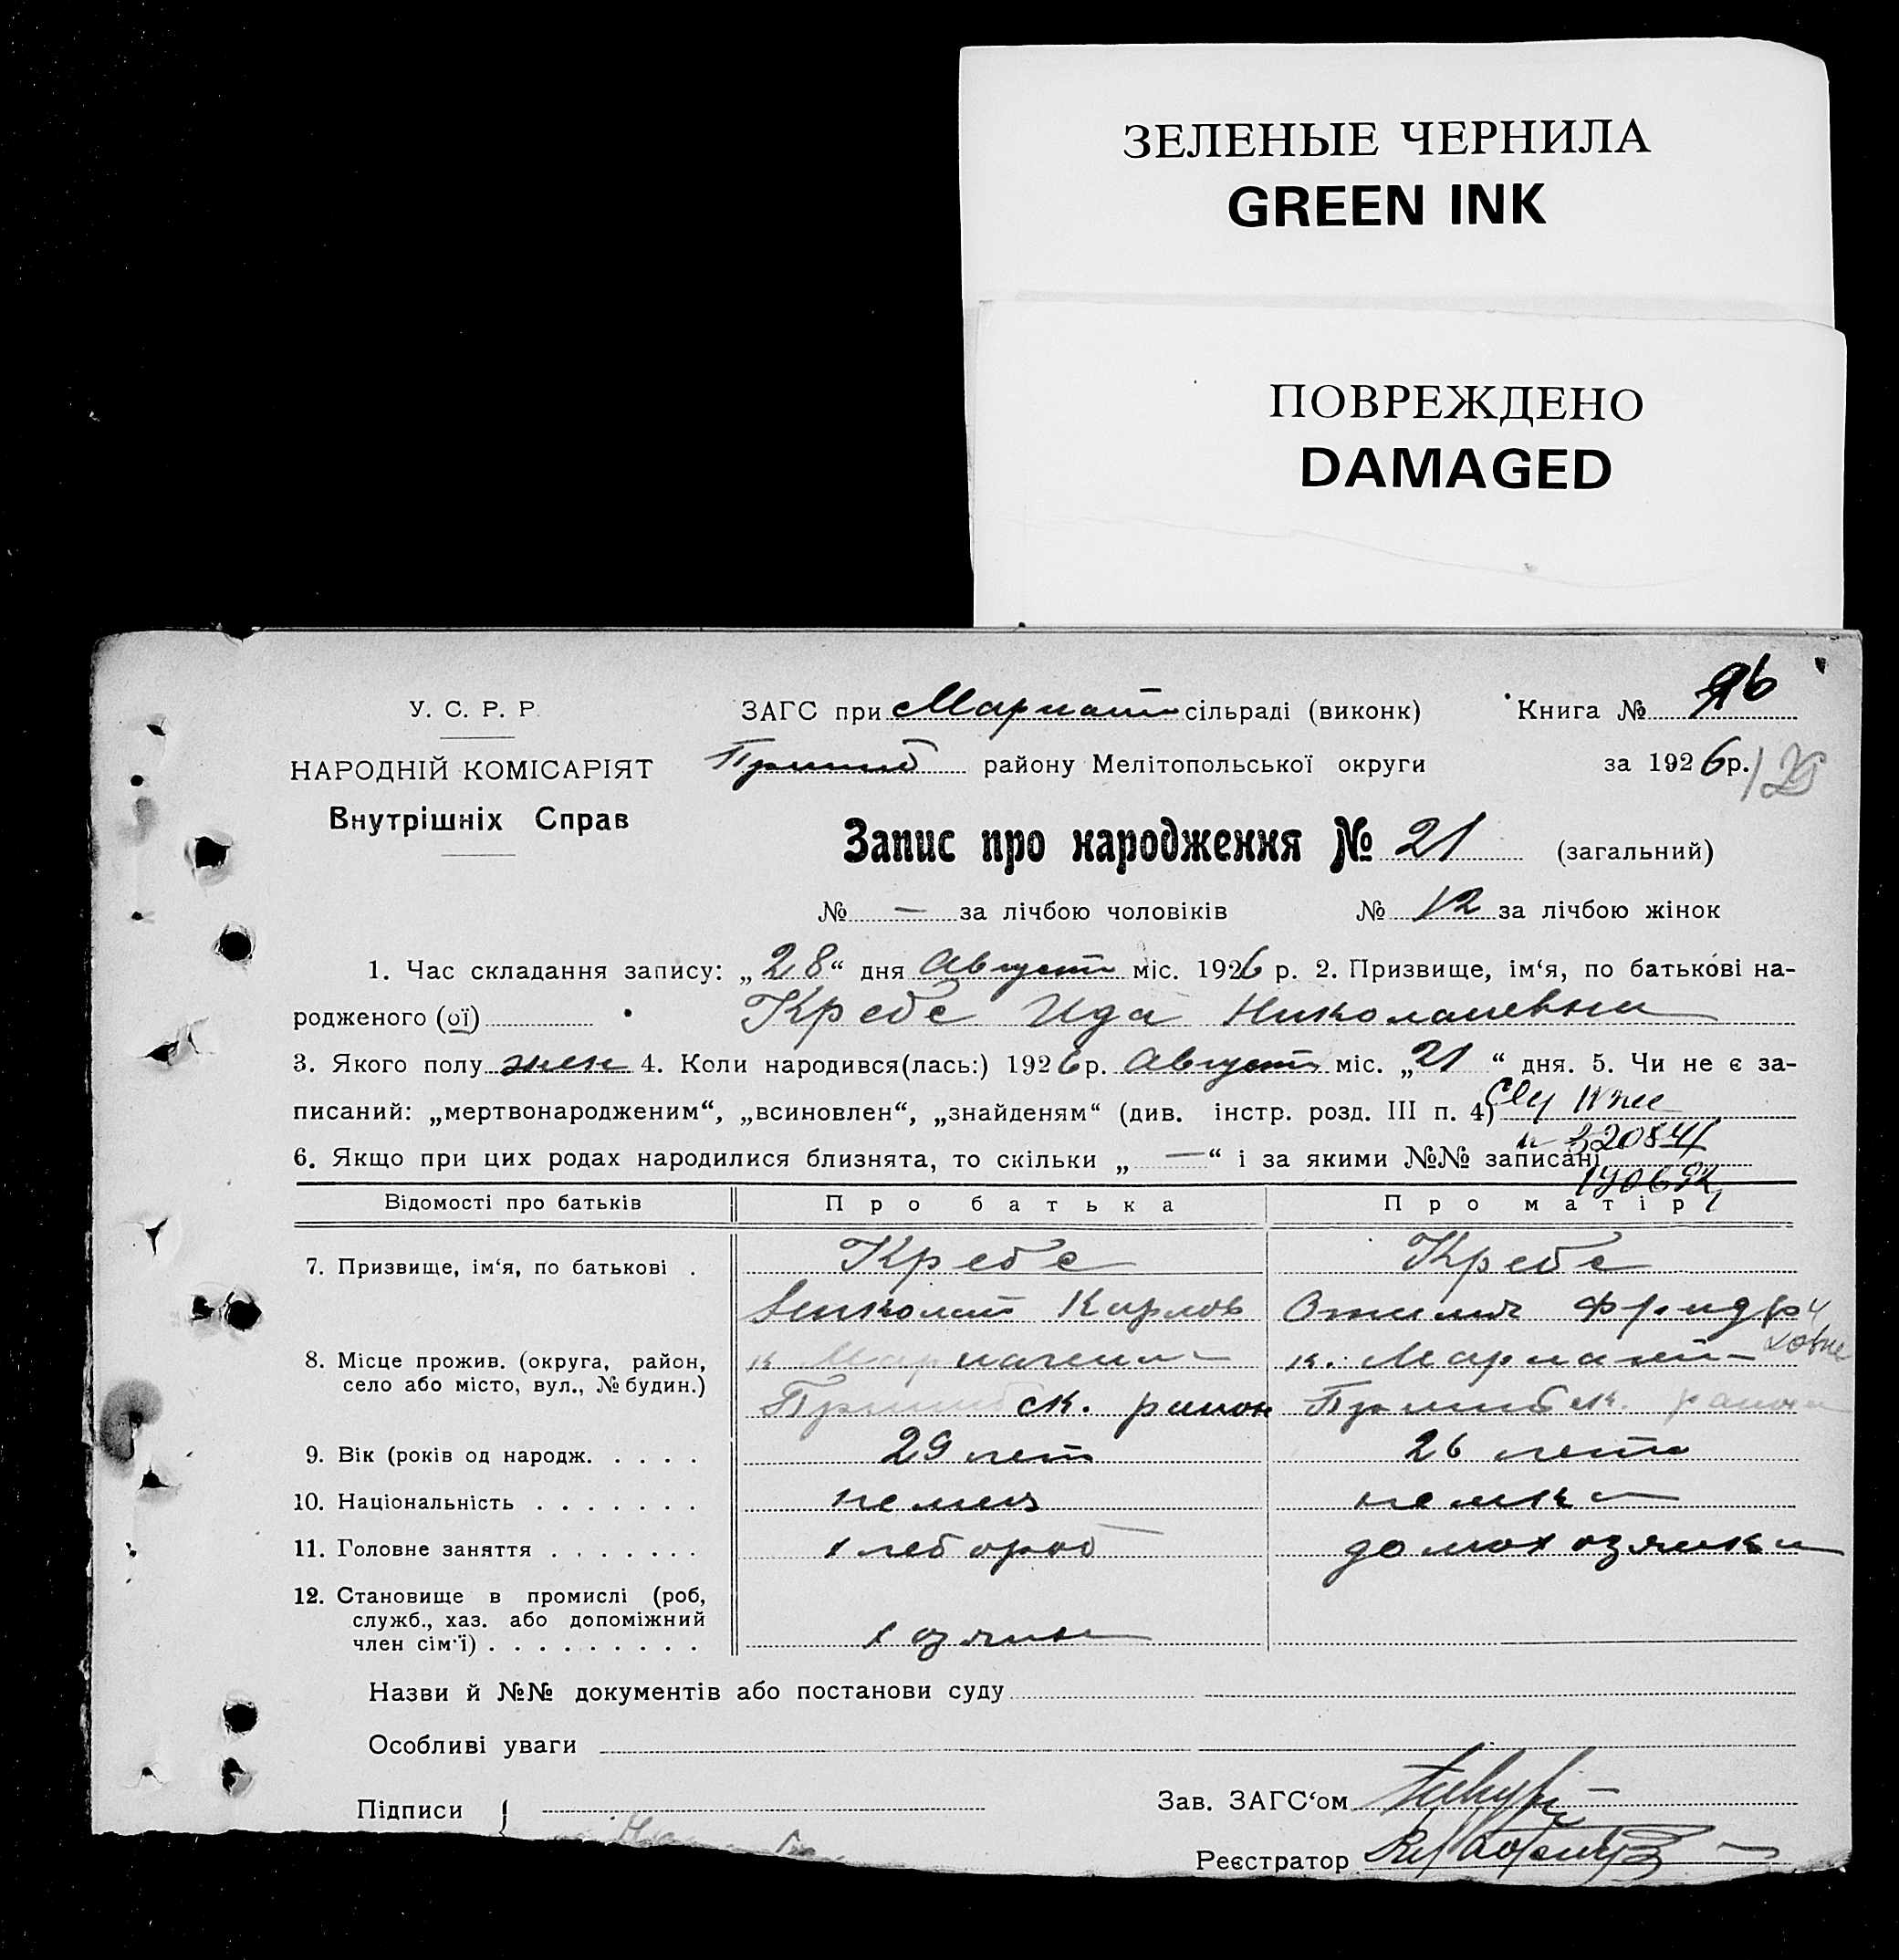 ЗЕЛЕНЫЕ ЧЕРНИЛА
GREEN INK
ПОВРЕЖДЕНО
DAMAGED
У. С. Р. Р.
НАРОДНІЙ КОМІСАРІЯТ
Внутрішніх Справ
ЗАГС при сільраді (виконк) Книга № 96
Пришиб району Мелітопольської округи за 1926 р.
Запис про народження № 21 (загальний)
№ — за лічбою чоловіків № 12 за лічбою жінок
1. Час складання запису: „28“ дня Август міс. 1926 р. 2. Призвище, ім‘я, по батькові на-
родженого (ої) Кребс Ида Николаевна
3. Якого полу жен 4. Коли народився(лась:) 1926 р. Август міс. „21“ дня. 5. Чи не є за-
писаний: „мертвонародженим“, „всиновлен“, „знайденям“ (див. інстр. розд. III п. 4)
6. Якщо при цих родах народилися близнята, то скільки „ — “ і за якими №№ записані
Відомості про батьків Про батька Про матір
7. Призвище, ім‘я, по батькові . Кребс Кребс
Николай Карлов Отилия Фридри
ховна
8. Місце прожив. (округа, район,
село або місто, вул., № будин.)
Пришибск. район Пришибск. района
9. Вік (років од народж. . . . . 29 лет 26 лет
10. Національність . . . . . . . немец немка
11. Головне заняття . . . . . . . хлебороб домохозяйка
12. Становище в промислі (роб,
служб., хаз. або допоміжний
член сім‘ї) . . . . . . . . . хозяин
Назви й №№ документів або постанови суду
Особливі уваги
Підписи {
Зав. ЗАГС‘ом
Реєстратор